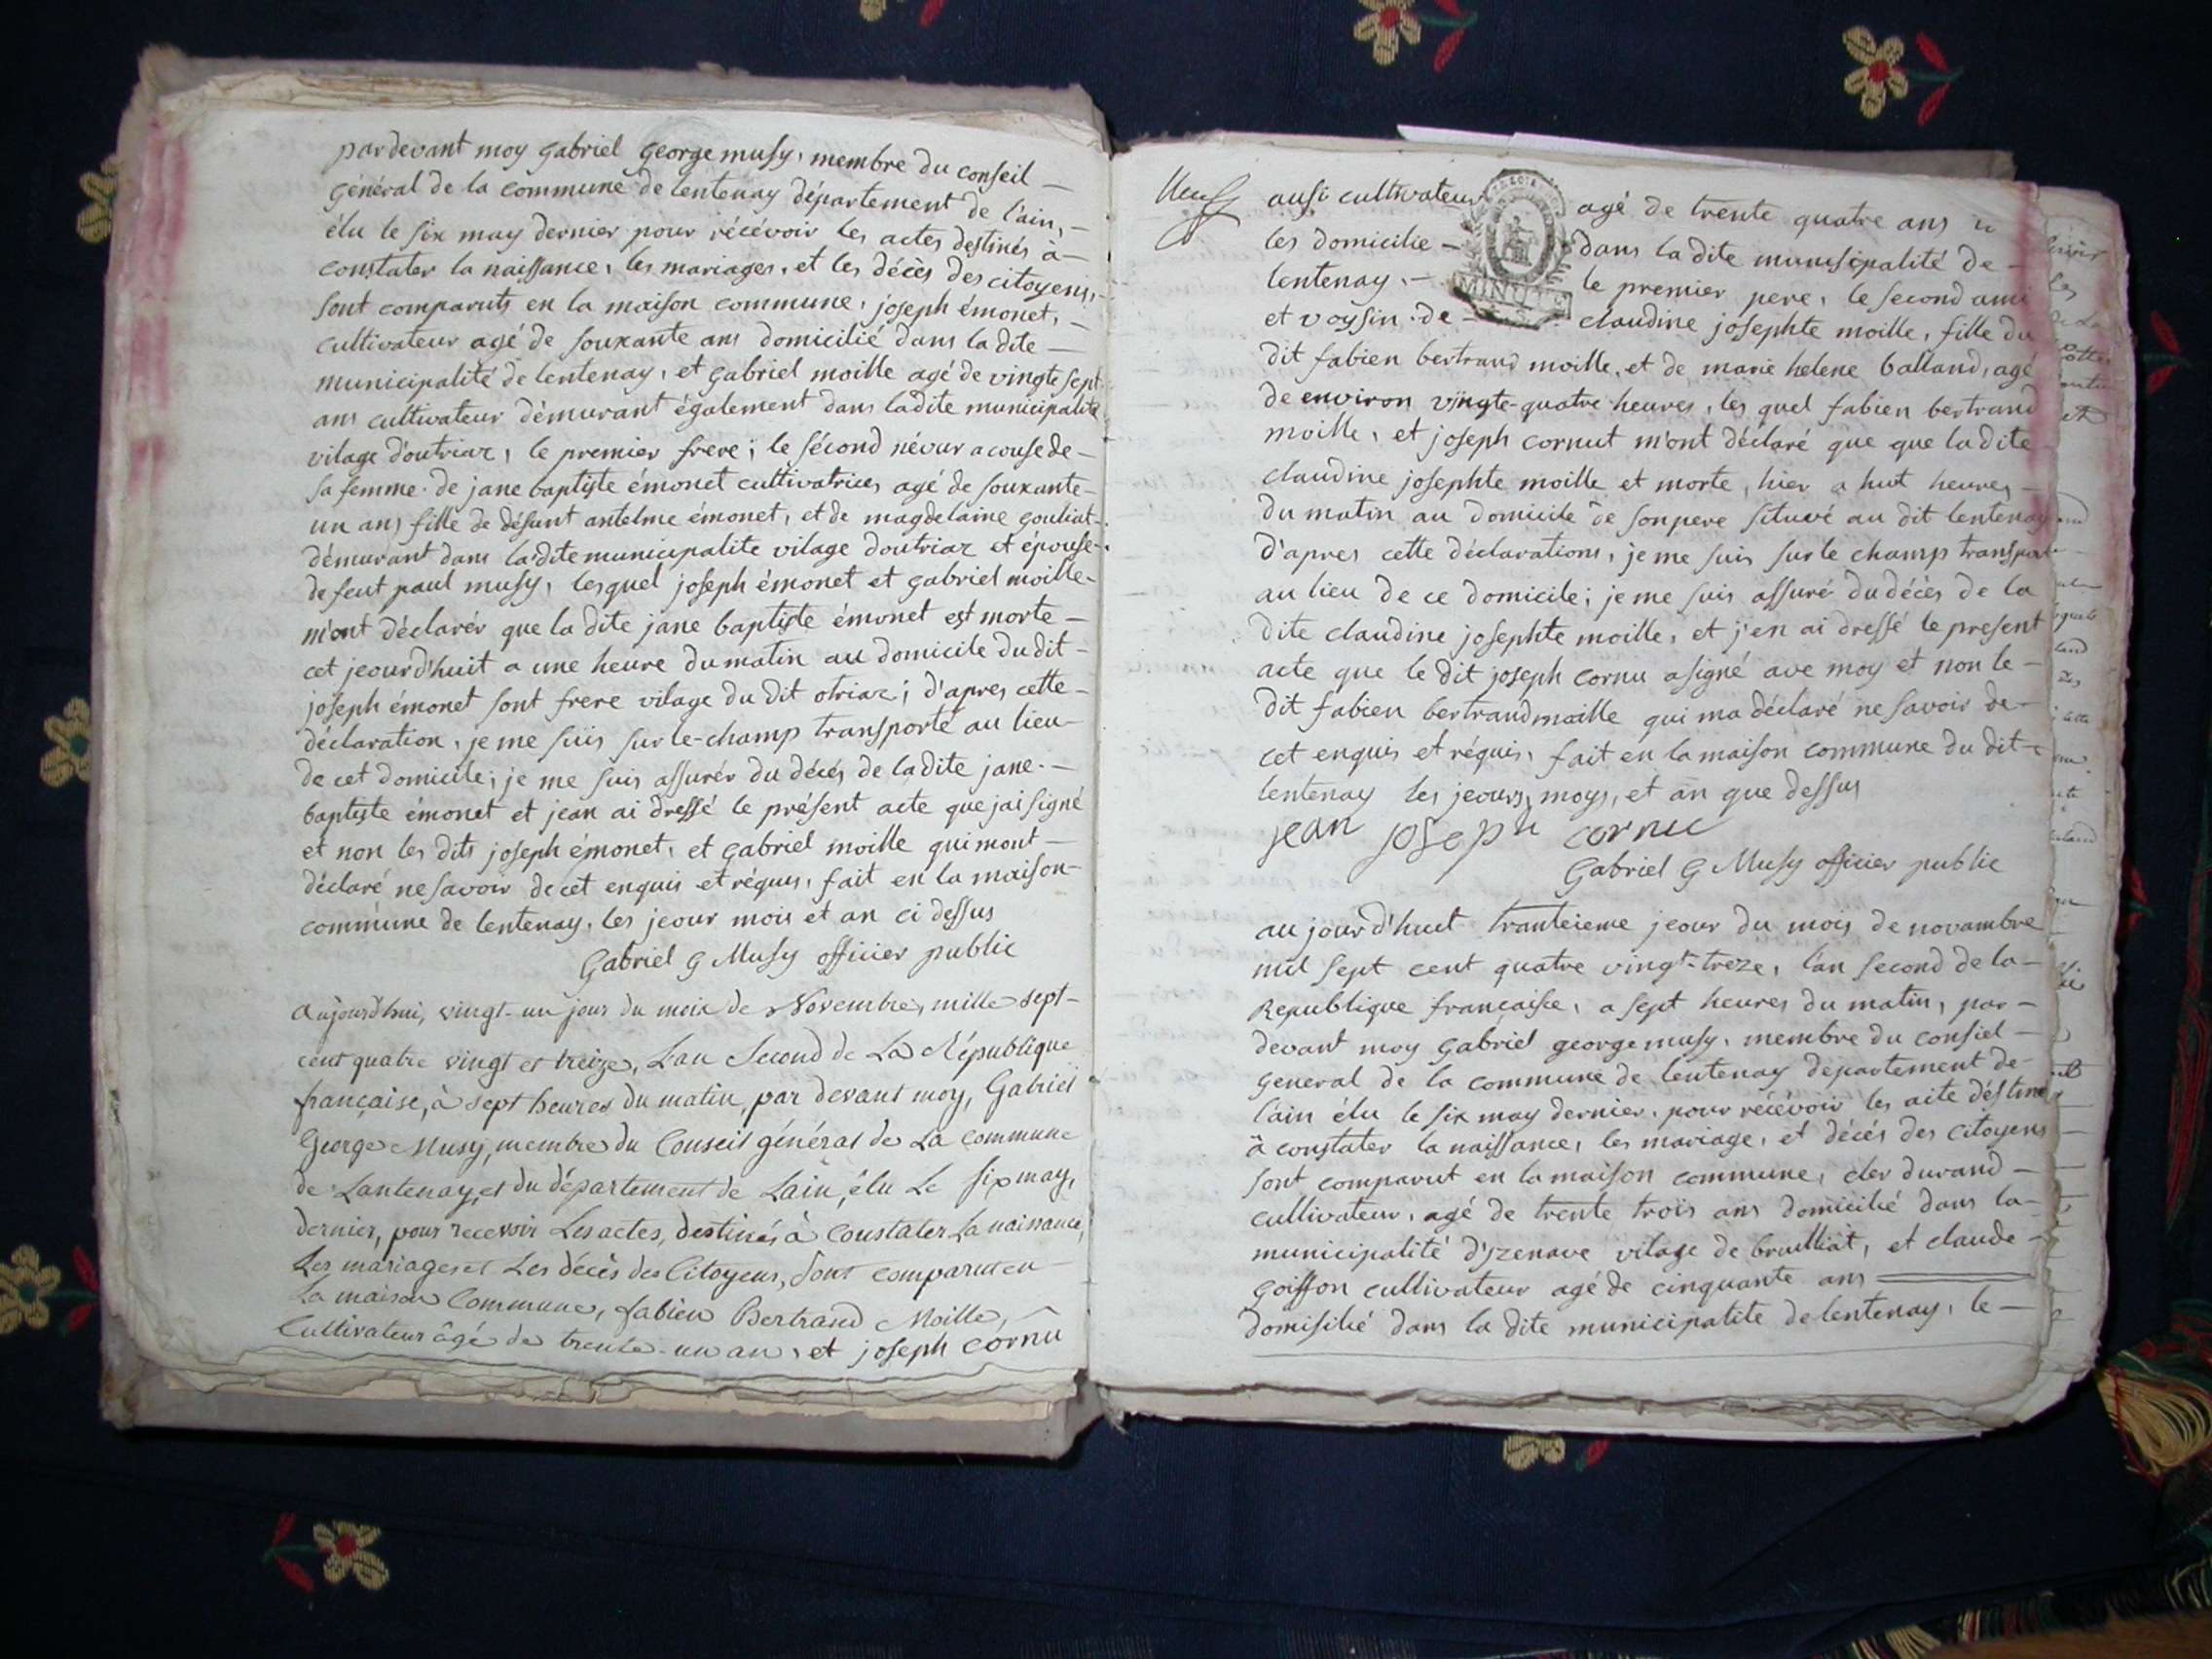 pardevant moy gabriel george musy, membre du conseil
général de la commune de lentenay département de l'ain,
élu le six may dernier pour récévoir les actes destinés à
constater la naissance, les mariages, et les décès des citoyens,
sont comparuts en la maison commune, joseph émonet,
cultivateur agé de souxante ans domicilié dans la dite
municipalité de lentenay, et gabriel moille agé de vingte sept
ans cultivateur démurant également dans ladite municipalité
vilage d'outriaz, le premier frere; le sécond névur a couse de
sa femme de jane baptiste émonet cultivatrice, agé de souxante
un ans fille de défunt antelme émonet, et de magdelaine gouliat
démurant dans la dite municipalite vilage doutriaz et épouse
de feut paul musy, lesquel joseph émonet et gabriel moille
m'ont déclarér que la dite jane baptiste émonet est morte
cet jeourd'huit a une heure du matin au domicile du dit
joseph émonet sont frere vilage du dit otriaz; d'apres cette
déclaration, je me suis sur le-champ transporté au lieu
de cet domicile; je me suis assurér du décés de la dite jane
baptiste émonet et jean ai dressé le présent acte que jai signé
et non les dits joseph émonet, et gabriel moille qui mont
déclaré ne savoir de cet enquis et réquis, fait en la maison
commune de lentenay, les jeour mois et an ci dessus
Gabriel G Musy officier public
Aujourd'hui, vingt-un jour du mois de Novembre, mille sept
cent quatre vingt et treize, L'an Second de La République
française, à sept heures du matin, par devant moy, Gabriel
George Musy, membre du Conseil général de La commune
de Lantenay, et du département de Lain, élu Le six may,
dernier, pour recevoir Les actes, destinés à Constater La naissance,
Les mariages et Les décès des Citoyens, Sont comparu en
La maison Commune, fabien Bertrand Moille,
Cultivateur âgé de trente-un an, et joseph cornu
Musy
ausi cultivateur agé de trente quatre ans
les domicilie dans la dite municipalité de
lentenay. le premier pere, le second ami
MINUTE
et voysin de claudine josephte moille, fille du
dit fabien bertrand moille, et de marie helene balland, agé
de environ vingte-quatre heures, les quel fabien bertrand
moille, et joseph cornut m'ont déclaré que que la dite
claudine josephte moille et morte, hier a hut heures
du matin au domicile de son pere situvé au dit lentenay
d'apres cette déclarations, je me suis sur le champ transporté
au lieu de ce domicile; je me suis assuré du décès de la
dite claudine josephte moille, et j'en ai dressé le present
acte que le dit joseph cornu a signé ave moy et non le
dit fabien bertrand moille qui ma déclaré ne savoir de
cet enquis et réquis, fait en la maison commune du dit
lentenay les jeours, moys, et an que dessus
jean joseph cornu
Gabriel G Musy officier public
au jour d'huet tranteieme jeour du mois de novambre
mil sept cent quatre vingt-treze, l'an second de la
Republique françaisse, a sept heures du matin, par
devant moy gabriel george musy, membre du consiel
general de la commune de lentenay departement de
l'ain élu le six may dernier, pour récévoir les aite déstiné
à constater la naissance, les mariage, et décés des citoyens
sont comparut en la maison commune, cler durand
cultivateur, agé de trente trois ans domicilié dans la
municipalité d'izenave vilage de bruilliat, et claude
goiffon cultivateur agé de cinquante ans
domisilié dans la dite municipalite de lentenay, le